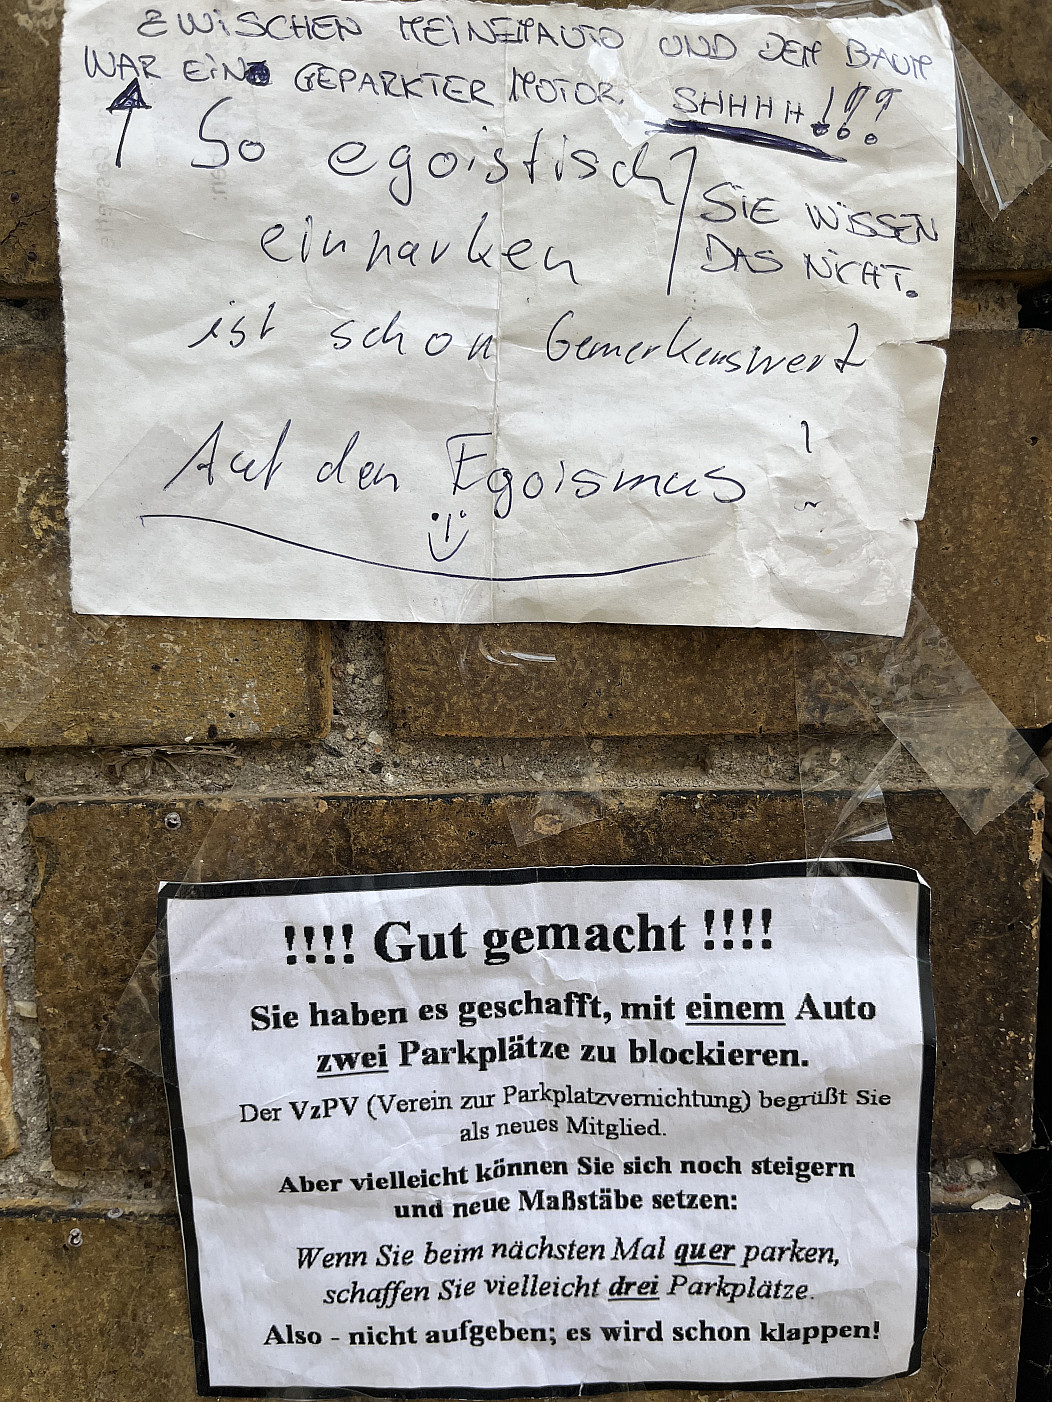 ZWISCHEN MEINEM AUTO UND DEM BAUM
WAR EIN GEPARKTER MOTOR. SHHHH!!!
So egoistisch
einparken
SIE WISSEN
DAS NICHT.
ist schon bemerkenswert
Auf den Egoismus !
!!!! Gut gemacht !!!!
Sie haben es geschafft, mit einem Auto
zwei Parkplätze zu blockieren.
Der VzPV (Verein zur Parkplatzvernichtung) begrüßt Sie
als neues Mitglied.
Aber vielleicht können Sie sich noch steigern
und neue Maßstäbe setzen:
Wenn Sie beim nächsten Mal quer parken,
schaffen Sie vielleicht drei Parkplätze.
Also - nicht aufgeben; es wird schon klappen!